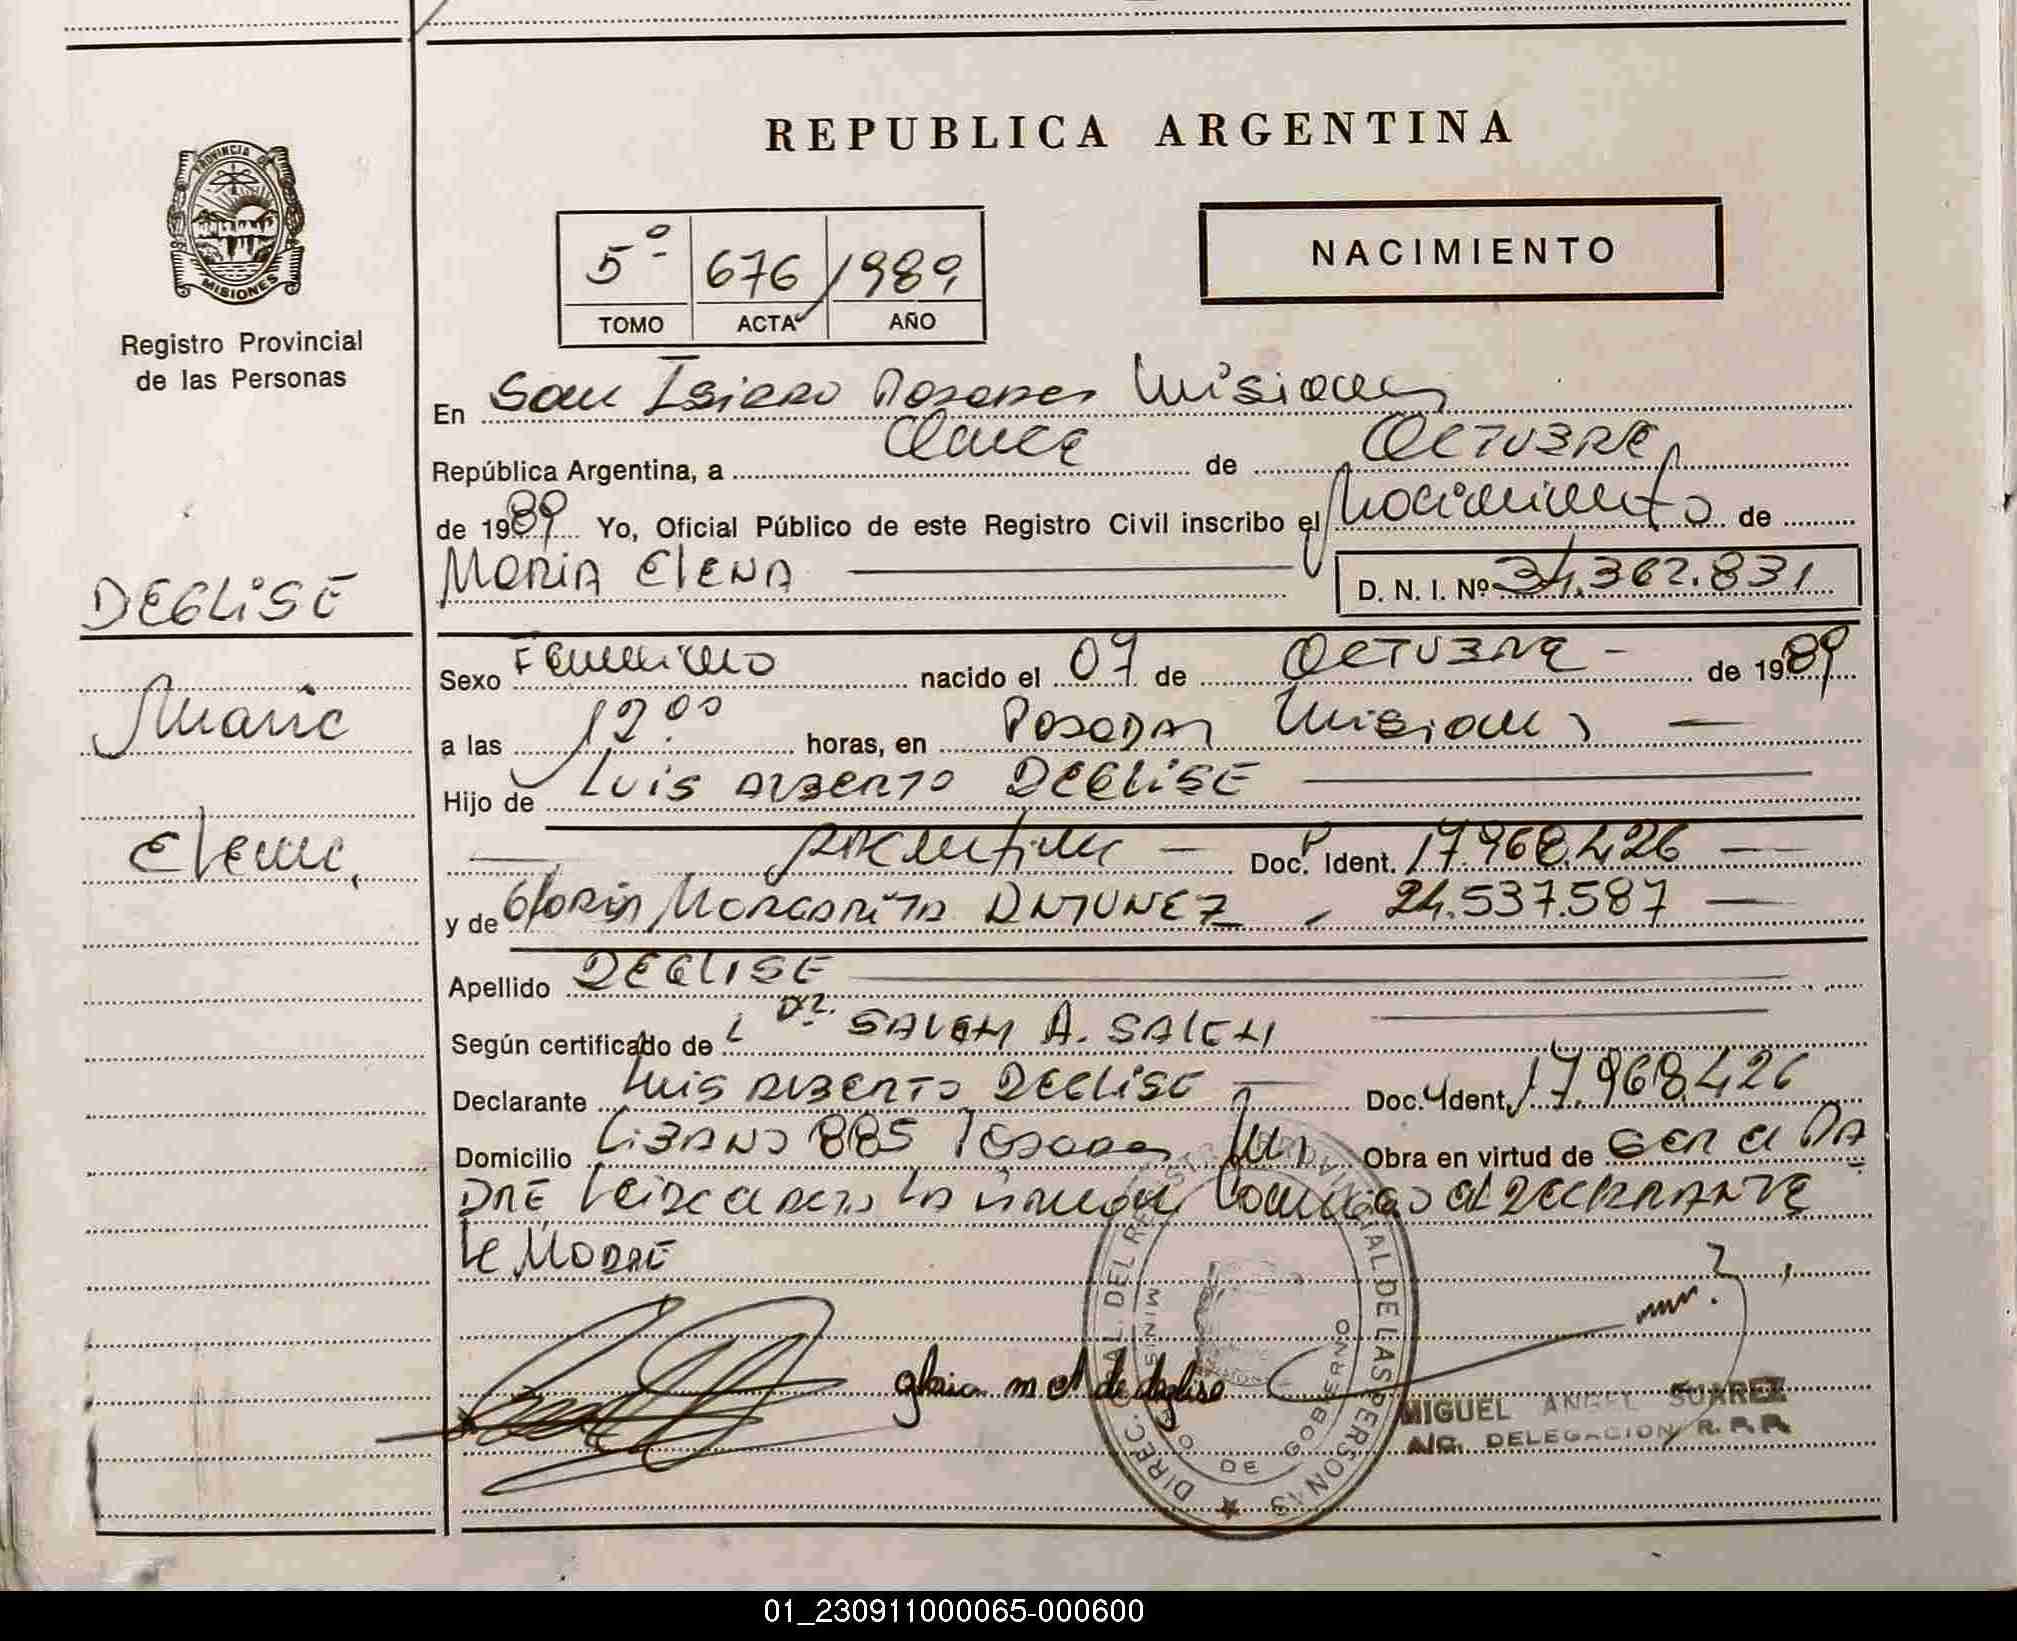 REPUBLICA ARGENTINA
PROVINCIA DE
MISIONES
Registro Provincial
de las Personas
5º 676 1989
TOMO ACTA AÑO
NACIMIENTO
En San Isidro Posadas Misiones
República Argentina, a Once de OCTUBRE
de 1989 Yo, Oficial Público de este Registro Civil inscribo el Nacimiento de
MARIA ELENA D. N. I. Nº 34.362.831
DEGLISE
Maria
Elena
Sexo Femenino nacido el 07 de OCTUBRE - de 1989
a las 12.00 horas, en POSADAS Misiones
Hijo de LUIS ALBERTO DEGLISE
Argentina - Doc. Ident. 17.968.426
y de Gloria MARGARITA ANTUNEZ, 24.537.587
Apellido DEGLISE
Según certificado de Dr. SALEM A. SALEM
Declarante Luis ALBERTO DEGLISE Doc. Ident. 17.968.426
Domicilio LIBANO 885 Posadas Obra en virtud de SER el PA
DRE Leída el acta la firman conmigo el DECLARANTE
le MADRE
gloria m A de deglise
DIREC. GRAL. DEL REGISTRO PROVINCIAL DE LAS PERSONAS
MINISTERIO DE GOBIERNO
MIGUEL ANGEL SUAREZ
A/C. DELEGACION R. P. P.
01_230911000065-000600